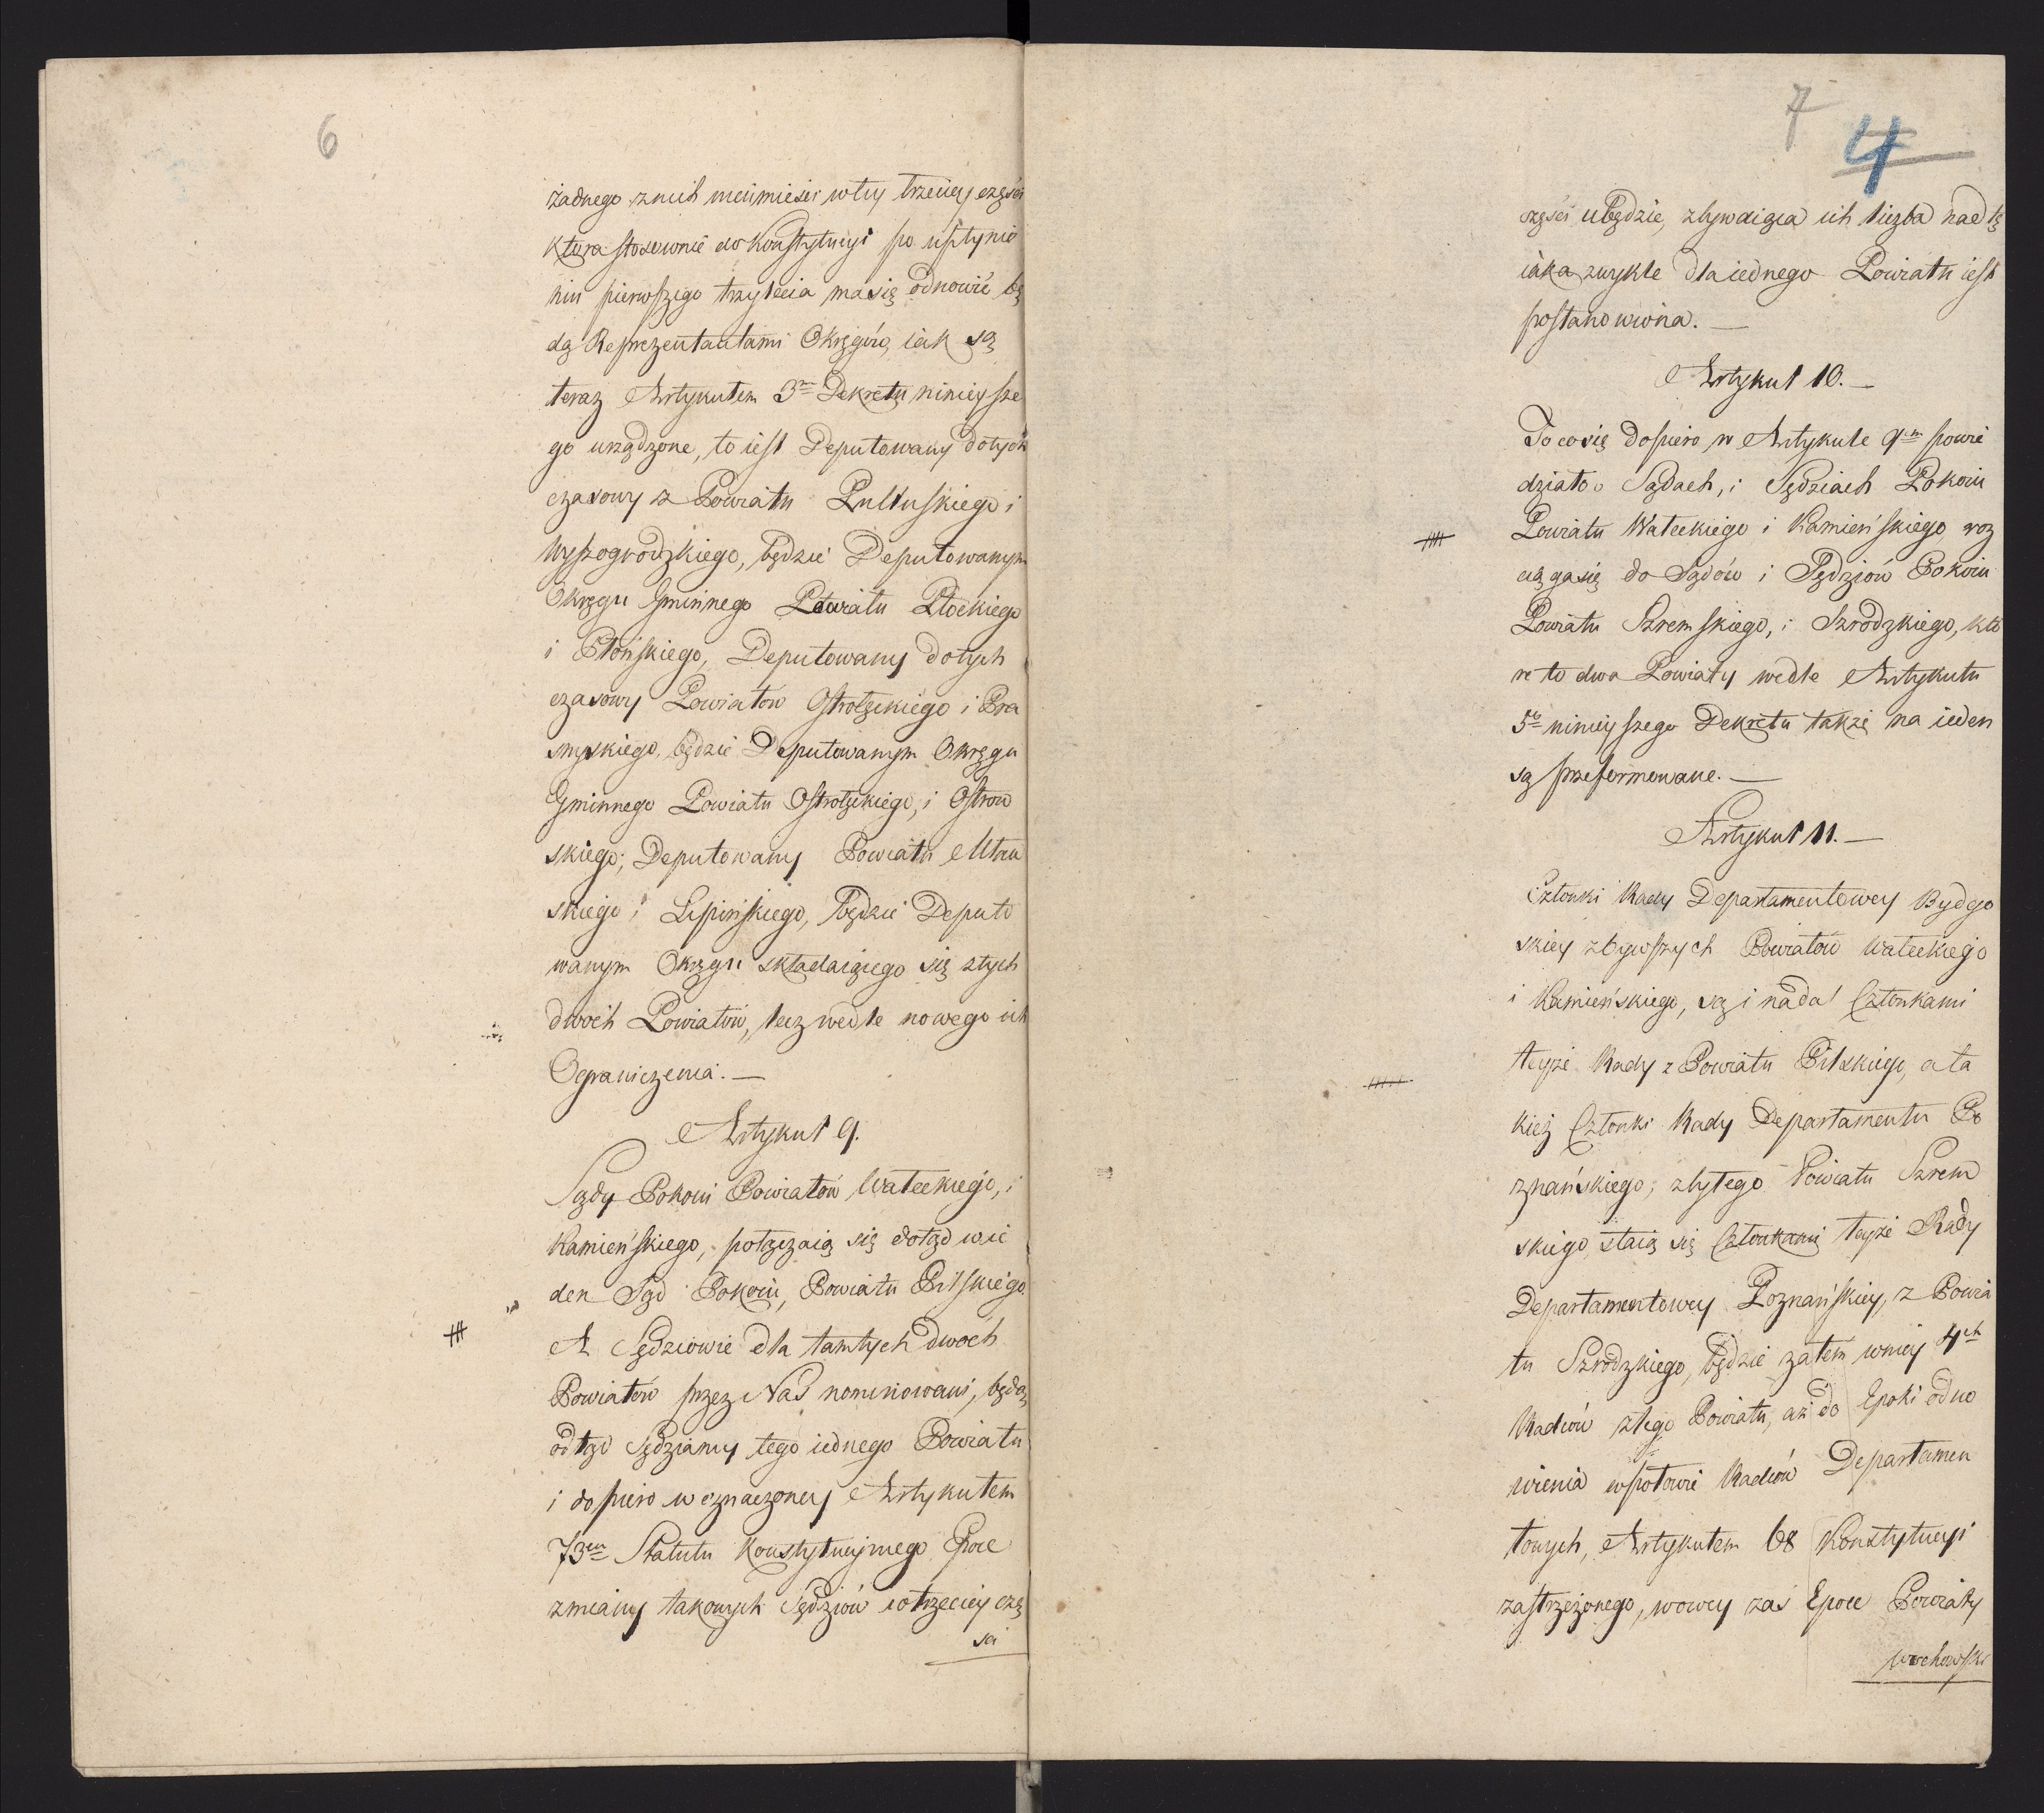 6
żadnego z nich nieumieści w tey trzeciey części
która stosownie do Konstytucyi po upłynie
niu pierwszego trzylecia ma się odnowić bę
dą Reprezentantami Okręgów, iak są
teraz Artykułem 3m Dekretu ninieysze
go urządzone, to iest Deputowany dotych
czasowy z Powiatu Pułtuskiego i
Wyszogrodzkiego, będzie Deputowanym
Okręgu Gminnego Powiatu Płockiego
i Płońskiego, Deputowany dotych
czasowy Powiatów Ostrołęckiego i Pra
snyskiego, będzie Deputowanym Okręgu
Gminnego Powiatu Ostrołęckiego, i Ostrow
skiego; Deputowany Powiatu Mław
skiego i Lipińskiego, będzie Deputo
wanym Okręgu składaiącego się z tych
dwóch Powiatów, lecz wedle nowego ich
Ograniczenia. —
Artykuł 9.
Sądy Pokoiu Powiatów Wałeckiego, i
Kamieńskiego, połączaią się dotąd w ie
den Sąd Pokoiu, Powiatu Pilskiego.
A Sędziowie dla tamtych dwóch
Powiatów przez Nas nominowani, będą
odtąd Sędziamy tego iednego Powiatu
i dopiero w oznaczoney Artykułem
73m Statutu Konstytucyjnego Epoce
zmiany takowych Sędziów w trzeciey czę
ści
7
4
części ubędzie, zbywaiąca ich liczba nad tę
iaka zwykle dla iednego Powiatu iest
postanowiona. —
Artykuł 10. —
To co się dopiero w Artykule 9m powie
działo o Sądach, i Sędziach Pokoiu
Powiatu Wałeckiego i Kamieńskiego, roz
ciąga się do Sądów i Sędziów Pokoiu
Powiatu Szremskiego, i Szrodzkiego, któ
re to dwa Powiaty wedle Artykułu
5o ninieyszego Dekretu także na ieden
są przeformowane. —
Artykuł 11. —
Członki Rady Departamentowey Bydgo
skiey z bywszych Powiatów Wałeckiego
i Kamieńskiego, są i nadal Członkami
teyże Rady z Powiatu Pilskiego, a ta
kież Członki Rady Departamentu Po
znańskiego, z byłego Powiatu Szrem
skiego, staią się Członkami teyże Rady
Departamentowey Poznańskiey, z Powia
tu Szrodzkiego, będzie zatem w niey 4ch
Radców z tego Powiatu, aż do Epoki odno
wienia w połowie Radców Departamen
towych, Artykułem 68 Konstytucyi
zastrzeżonego, w owey zaś Epoce Powiaty
wschowski